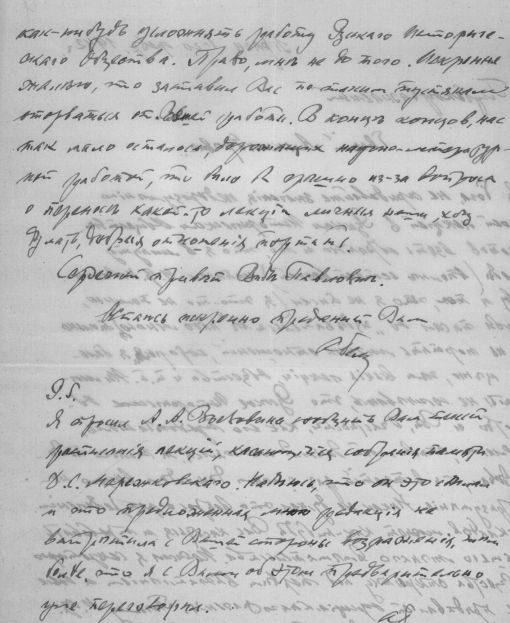 какъ-нибудь усложнять работу Вашего Историче-
скаго Общества. Право, мнѣ не до того. Искренне
жалѣю, что заставилъ Васъ по такимъ пустякамъ
оторваться от Вашей работы. В концѣ концовъ, нас
так мало осталось, дорожащих научно-литератур-
ной работой, что было б грѣшно из-за вопроса
о переносѣ какой-то лекціи личныя наши, хочу
думать, добрыя отношенія портить.
Сердечный привѣт Вѣрѣ Павловнѣ.
Остаюсь искренно преданный Вам
P.S.
Я просил А. А. сообщить Вам текст
расписанія лекцій, касающійся собранія памяти
Д. С. Мережковского. Надѣюсь, что он это сдѣлал
и что предложенная мною редакція не
встрѣтила с Вашей стороны возраженія, тѣм
болѣе, что я с Вами об этом предварительно
уже переговорил.